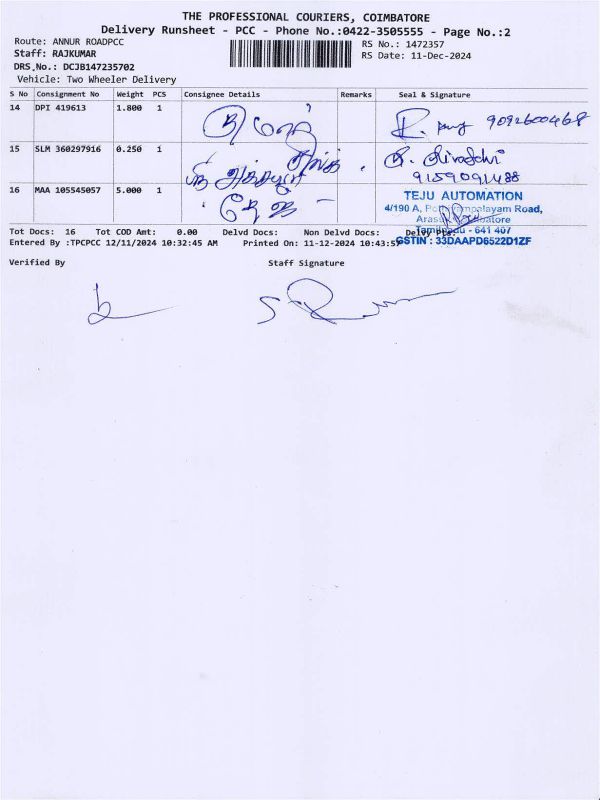 THE PROFESSIONAL COURIERS, COIMBATORE
Delivery Runsheet - PCC - Phone No.:0422-3505555 - Page No.:2
Route: ANNUR ROADPCC
RS No.: 1472357
Staff: RAJKUMAR
RS Date: 11-Dec-2024
DRS,No.: DCJB147235702
Vehicle: Two Wheeler Delivery
S No Consignment No Weight PCS Consignee Details Remarks Seal & Signature
14 DPI 419613 1.800 1
15 SLM 360297916 0.250 1
9159091488
16 MAA 105545057 5.000 1
TEJU AUTOMATION
4/190 A, Road,
Tamilnadu - 641 407
GSTIN : 33DAAPD6522D1ZF
Tot Docs: 16 Tot COD Amt: 0.00 Delvd Docs: Non Delvd Docs: Delvy
Entered By :TPCPCC 12/11/2024 10:32:45 AM Printed On: 11-12-2024 10:43:57
Verified By Staff Signature